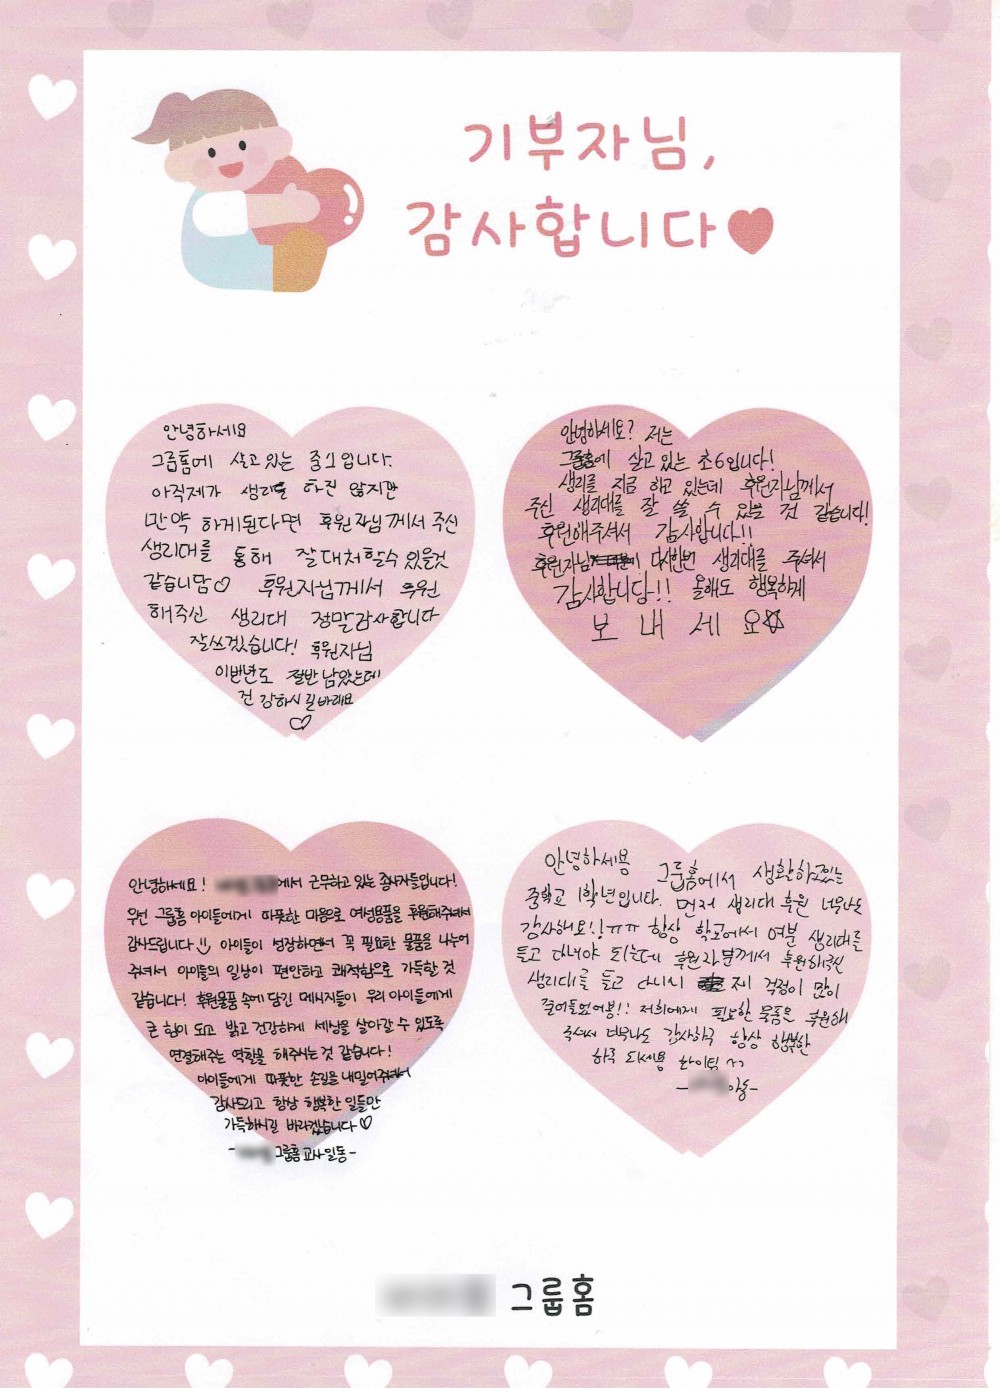 기부자님,
감사합니다♥
안녕하세요
그룹홈에 살고 있는 중1입니다.
아직제가 생리를 하진 않지만
만약 하게된다면 후원자님께서 주신
생리대를 통해 잘대처할수 있을것
같습니담♡ 후원자님께서 후원
해주신 생리대 정말감사합니다
잘쓰겠습니다! 후원자님
이번년도 절반 남았는데
건강하시길바래요
♡
안녕하세요? 저는
그룹홈에 살고 있는 초6입니다!
생리를 지금 하고 있는데 후원자님께서
주신 생리대를 잘 쓸 수 있을 것 같습니다!
후원해주셔서 감사합니다!!
후원자님 다시한번 생리대를 주셔서
감사합니당!! 올해도 행복하게
보내세요☆
안녕하세요! 에서 근무하고 있는 종사자들입니다!
우선 그룹홈 아이들에게 따뜻한 마음으로 여성용품을 후원해주셔서
감사드립니다 :) 아이들이 성장하면서 꼭 필요한 물품을 나누어
주셔서 아이들의 일상이 편안하고 쾌적함으로 가득할 것
같습니다! 후원물품 속에 담긴 메시지들이 우리 아이들에게
큰 힘이 되고 밝고 건강하게 세상을 살아갈 수 있도록
연결해주는 역할을 해주시는 것 같습니다!
아이들에게 따뜻한 손길을 내밀어주셔서
감사드리고 항상 행복한 일들만
가득하시길 바라겠습니다♡
- 그룹홈 교사일동-
안녕하세용 그룹홈에서 생활하고있는
중학교 1학년입니다. 먼저 생리대 후원 너무나도
감사해요!!ㅠㅠ 항상 학교에서 여분 생리대를
들고 다녀야 되는데 후원자분께서 후원해주신
생리대를 들고 다니시 제 걱정이 많이
줄어들었어용!! 저희에게 필요한 물품을 후원해
주셔서 너무나도 감사하구 항상 행복한
하루 되세용 화이팅 ^^
그룹홈